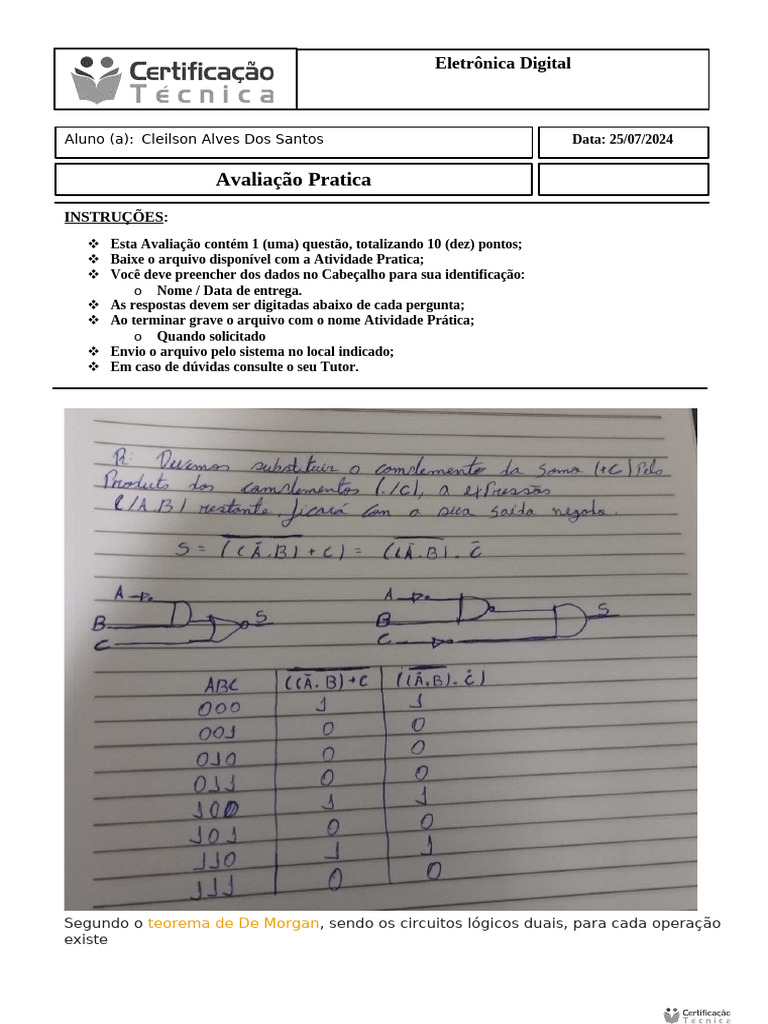 Certificação
Técnica
Eletrônica Digital
Aluno (a): Cleilson Alves Dos Santos
Data: 25/07/2024
Avaliação Pratica
INSTRUÇÕES:
❖ Esta Avaliação contém 1 (uma) questão, totalizando 10 (dez) pontos;
❖ Baixe o arquivo disponível com a Atividade Pratica;
❖ Você deve preencher dos dados no Cabeçalho para sua identificação:
o Nome / Data de entrega.
❖ As respostas devem ser digitadas abaixo de cada pergunta;
❖ Ao terminar grave o arquivo com o nome Atividade Prática;
o Quando solicitado
❖ Envio o arquivo pelo sistema no local indicado;
❖ Em caso de dúvidas consulte o seu Tutor.
R: Devemos substituir o complemento da soma (+C) Pelo
Produto dos complementos (./C), a expressão
(/A.B) restante, ficará com a sua saída negada.
S = \overline{((Ā.B) + C)} = \overline{(Ā.B)} . C̄
A A
B S B S
C C
ABC \overline{((Ā.B)+C} (\overline{(Ā.B)}.C̄)
000 1 1
001 0 0
010 0 0
011 0 0
100 1 1
101 0 0
110 1 1
111 0 0
Segundo o teorema de De Morgan, sendo os circuitos lógicos duais, para cada operação
existe
Certificação
Técnica